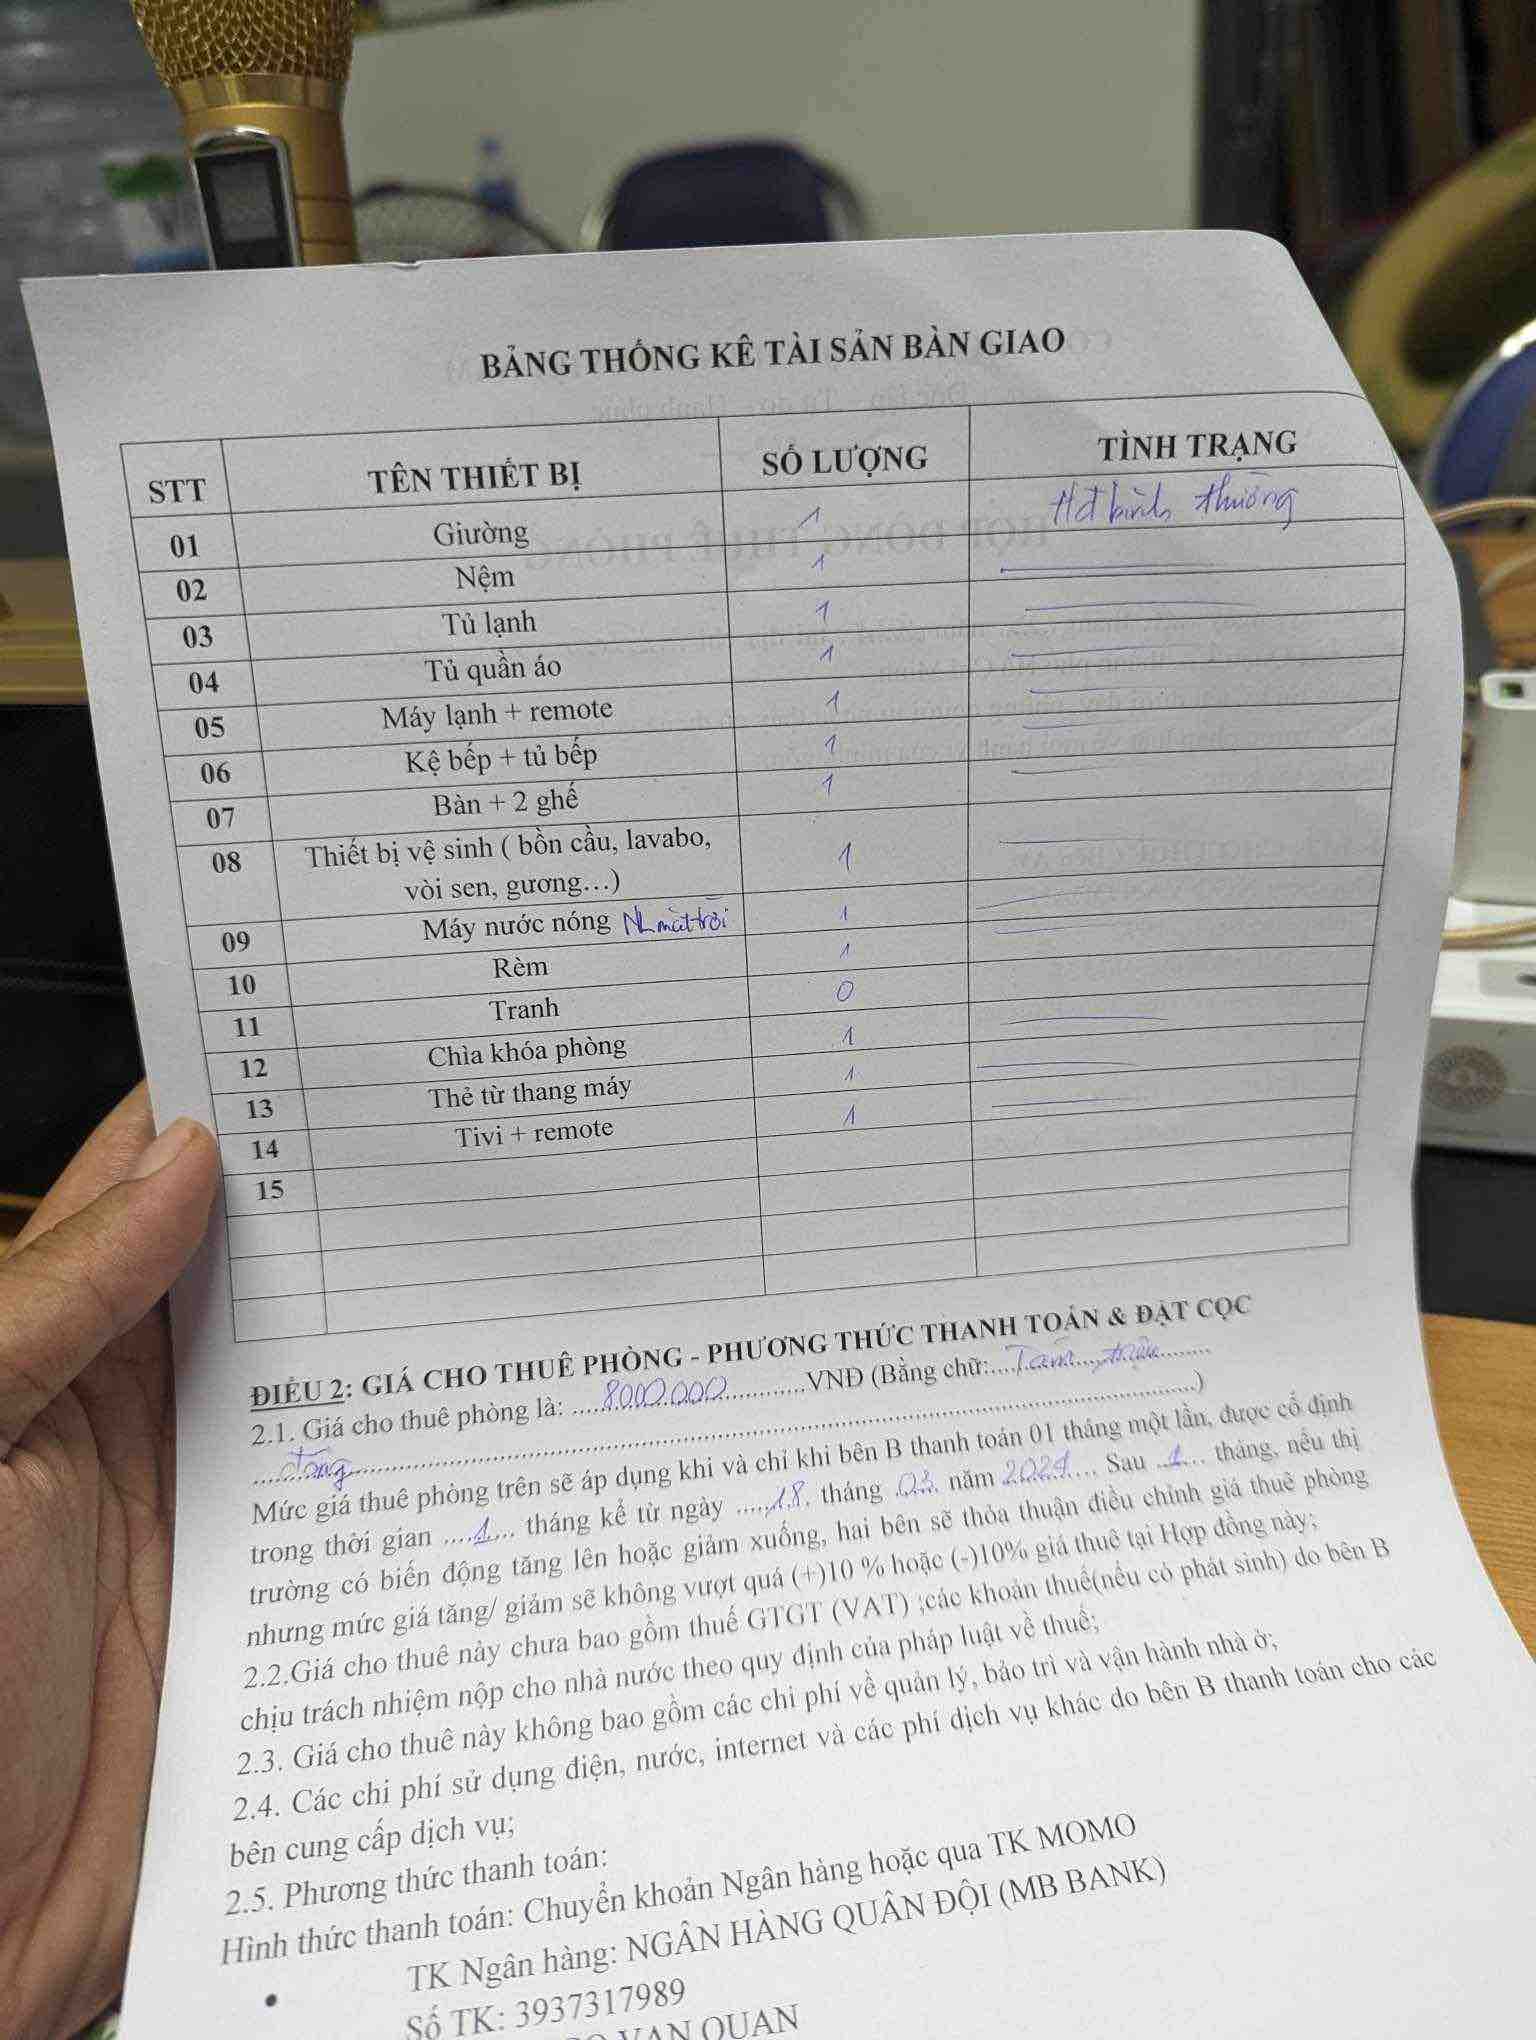 BẢNG THỐNG KÊ TÀI SẢN BÀN GIAO
STT TÊN THIẾT BỊ SỐ LƯỢNG TÌNH TRẠNG
01 Giường 1 Hđ bình thường
02 Nệm 1
03 Tủ lạnh 1
04 Tủ quần áo 1
05 Máy lạnh + remote 1
06 Kệ bếp + tủ bếp 1
07 Bàn + 2 ghế 1
08 Thiết bị vệ sinh ( bồn cầu, lavabo, 1
vòi sen, gương…)
09 Máy nước nóng NL mặt trời 1
10 Rèm 1
11 Tranh 0
12 Chìa khóa phòng 1
13 Thẻ từ thang máy 1
14 Tivi + remote 1
15
ĐIỀU 2: GIÁ CHO THUÊ PHÒNG - PHƯƠNG THỨC THANH TOÁN & ĐẶT CỌC
2.1. Giá cho thuê phòng là: ....8000.000............VNĐ (Bằng chữ:....Tám triệu........
....đồng....)
Mức giá thuê phòng trên sẽ áp dụng khi và chỉ khi bên B thanh toán 01 tháng một lần, được cố định
trong thời gian ....1.... tháng kể từ ngày .....18. tháng .03. năm 2024.... Sau ..1... tháng, nếu thị
trường có biến động tăng lên hoặc giảm xuống, hai bên sẽ thỏa thuận điều chỉnh giá thuê phòng
nhưng mức giá tăng/ giảm sẽ không vượt quá (+)10 % hoặc (-)10% giá thuê tại Hợp đồng này;
2.2.Giá cho thuê này chưa bao gồm thuế GTGT (VAT) ;các khoản thuế(nếu có phát sinh) do bên B
chịu trách nhiệm nộp cho nhà nước theo quy định của pháp luật về thuế;
2.3. Giá cho thuê này không bao gồm các chi phí về quản lý, bảo trì và vận hành nhà ở;
2.4. Các chi phí sử dụng điện, nước, internet và các phí dịch vụ khác do bên B thanh toán cho các
bên cung cấp dịch vụ;
2.5. Phương thức thanh toán:
Hình thức thanh toán: Chuyển khoản Ngân hàng hoặc qua TK MOMO
• TK Ngân hàng: NGÂN HÀNG QUÂN ĐỘI (MB BANK)
Số TK: 3937317989
VAN QUAN